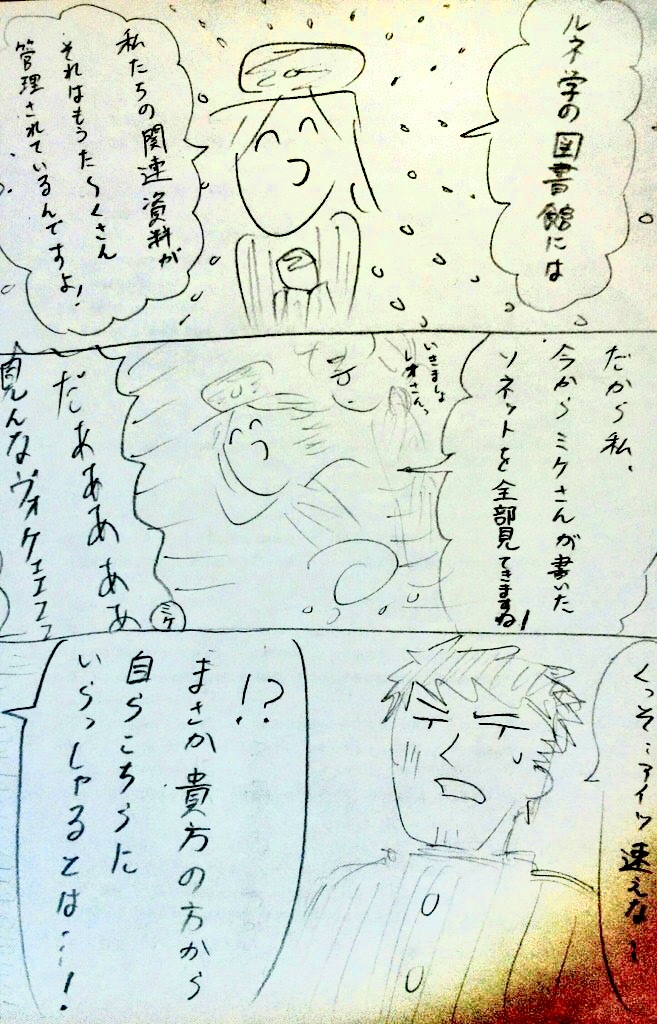 ルネ学の図書館には
私たちの関連資料が
それはもうた〜くさん
管理されているんですよ!
だから私、
今からミケさんが書いた
ソネットを全部見てきますね!
いきましょ
レオさんっ
だぁあああああ
見んなヴォケエエエエ
ミケ
くっそ…アイツ速えな…
!?
まさか貴方の方から
自らこちらに
いらっしゃるとは…!